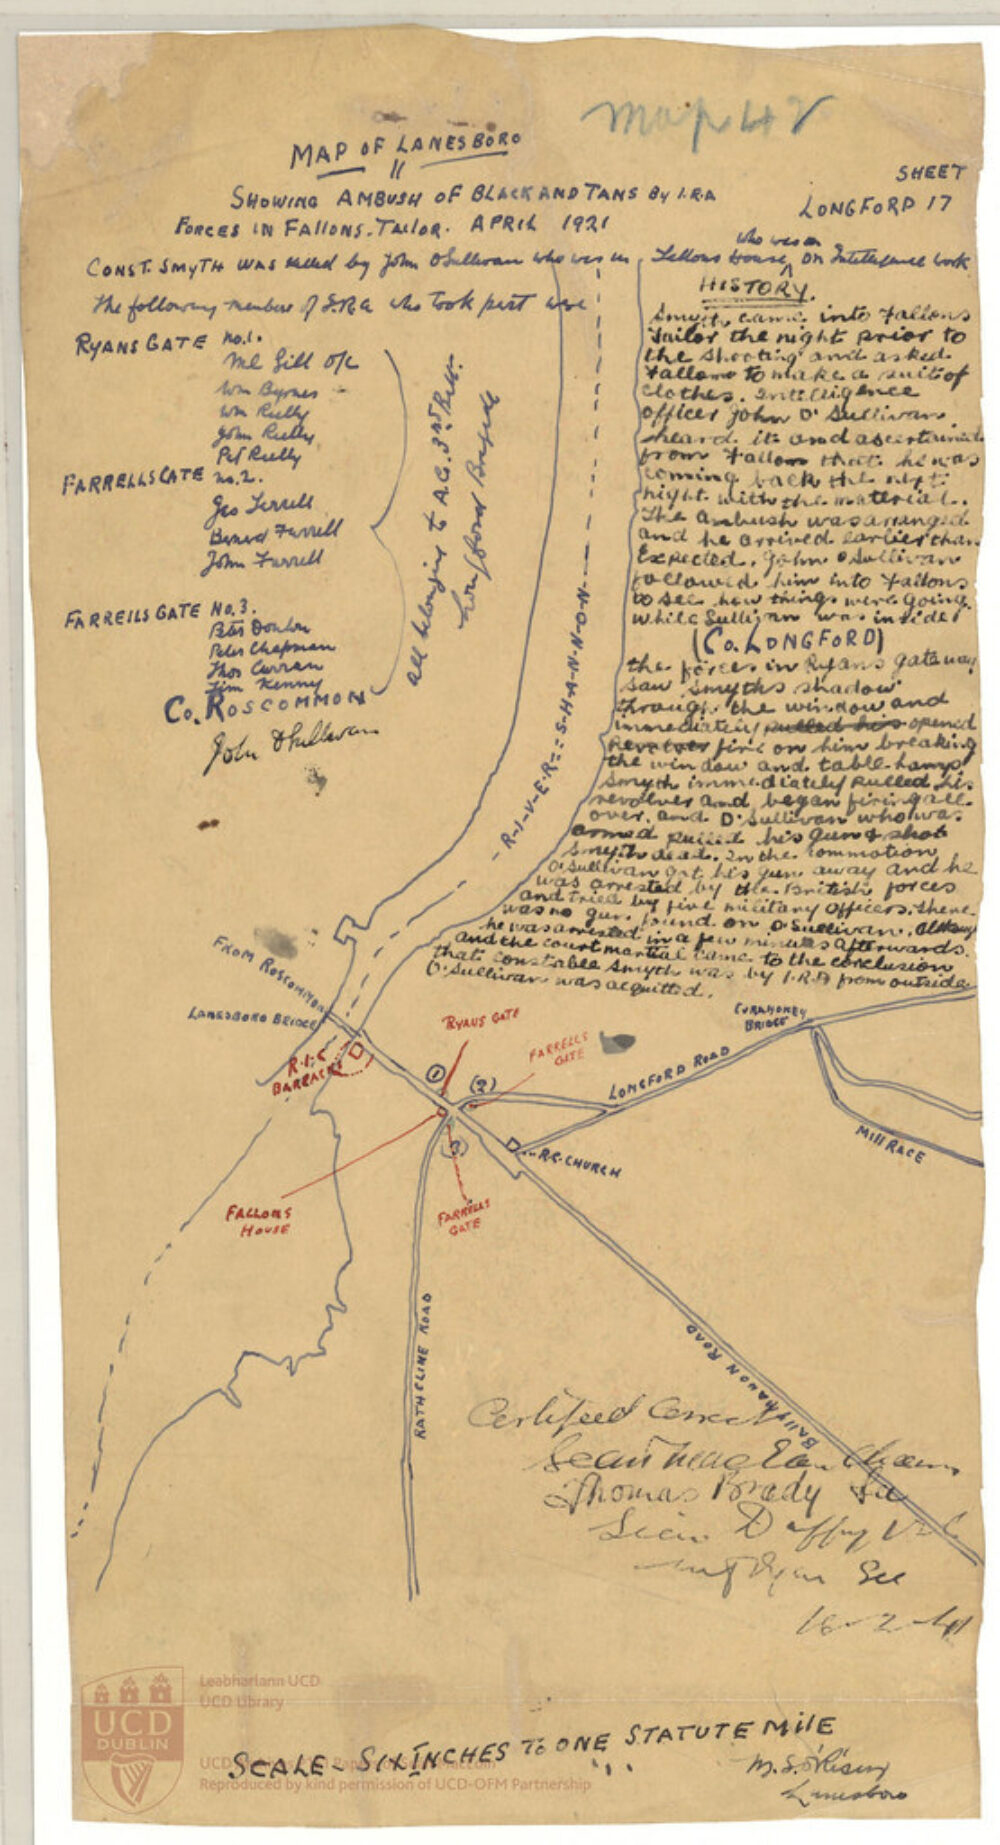 Map 42
MAP OF LANESBORO
SHEET
LONGFORD 17
SHOWING AMBUSH OF BLACK AND TANS By I.R.A
FORCES IN FALLONS-TAILOR. APRIL 1921
CONST. SMYTH WAS killed by John O'Sullivan who was in Fallons House, who was on Intelligence work
The following members of I.R.A who took part were
RYANS GATE No.1.
Ml Gill O/C
Wm Byrnes
Wm Reilly
John Reilly
Pat Reilly
FARRELLS GATE No.2.
Geo Farrell
Bernard Farrell
John Farrell
FARRELLS GATE No.3.
Peter Donlon
Peter Chapman
Thos Curran
Jim Kenny
John O'Sullivan
all belonging to A.C. 3rd Batt.
Longford Brigade
CO. ROSCOMMON
HISTORY.
Smyth came into Fallons
Tailor the night prior to
the shooting and asked
Fallons to make a suit of
clothes. Intelligence
officer John O'Sullivan
heard it and ascertained
from Fallon that he was
coming back the next
night with the material.
The ambush was arranged
and he arrived earlier than
Expected. John O Sullivan
followed him into Fallons
to see how things were going.
while Sullivan was inside
(CO. LONGFORD)
the forces in Ryans gateway
saw Smyths shadow
through the window and
immediately pulled his opened
Revolver fire on him breaking
the window and table lamp
Smyth immediately pulled his
revolver and began firing all
over. and O'Sullivan who was
armed pulled his gun & shot
Smyth dead. In the commotion
O'Sullivan got his gun away and he
was arrested by the British forces
and tried by five military officers. There
was no gun found on O'Sullivan.
he was arrested in a few minutes afterwards.
and the court martial came to the conclusion
that constable Smyth was by I.R.A from outside
O'Sullivan was acquitted.
R-I-V-E-R=:S-H-A-N-N-O-N
FROM ROSCOMMON
LANESBORO BRIDGE
R.I.C
BARRACKS
RYANS GATE
FARRELLS
GATE
1
(2)
(3)
LONGFORD ROAD
CURRAHONEY
BRIDGE
Mill RACE
R.C. CHURCH
FALLONS
HOUSE
FARRELLS
GATE
RATHCLINE ROAD
BALLYMAHON ROAD
Certified Correct
Sean
Thomas Brady
Sean Duffy
Ryan Sec
16-2-41
SCALE - SIX INCHES To ONE STATUTE MilE
M. S.
Lanesboro
Leabharlann UCD
UCD Library
UCD
DUBLIN
Reproduced by kind permission of UCD-OFM Partnership